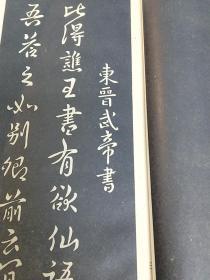 東晉武帝書
比得譙王書有欲仙語
吾答之如別卿前云